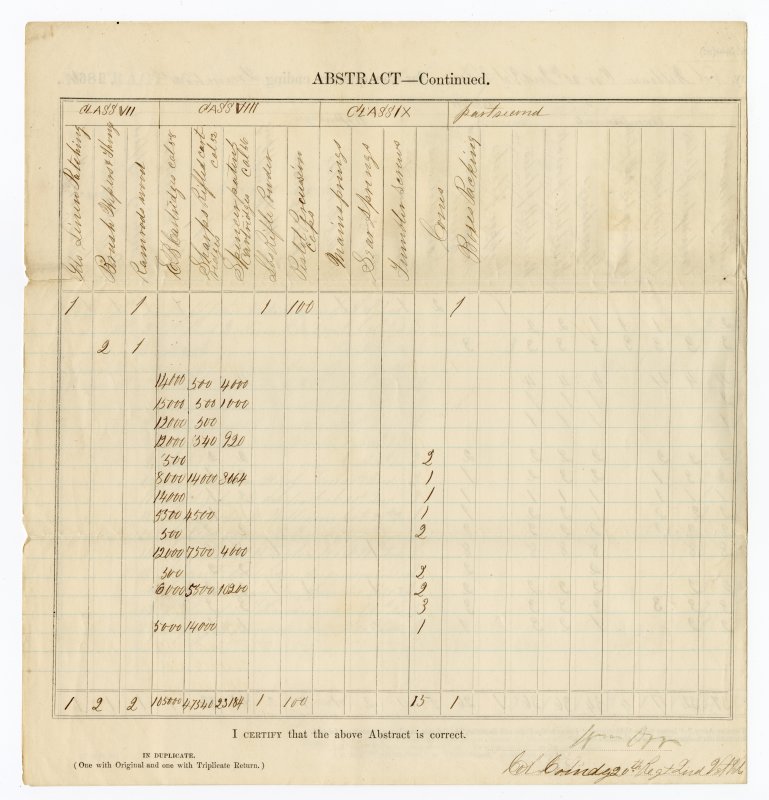 ABSTRACT—Continued.
CLASS VII CLASS VIII CLASS IX part second
Lbs Linen Patching
Brush Wipers & Thong
Ramrods wood
E B Cartridges calor
Sharps Rifled cart
Spencer pattng
Cartridges Cal
Lbs Rifle Powder
Pistol Percussion
Caps
Mainsprings
Sear Springs
Tumbler Screws
Cones
Boxes Packing
1 1 1 100 1
2 1
14000 500 4000
15000 500 1000
12000 500
12000 340 920
500 2
8000 14000 3064 1
14000 1
5500 4500 1
500 2
12000 7500 4000
500 2
6000 5500 10200 2
3
5000 14000 1
1 2 2 105000 47340 23184 1 100 15 1
I CERTIFY that the above Abstract is correct.
Wm Orr
IN DUPLICATE.
(One with Original and one with Triplicate Return.)
Col Comdg 20th Regt Ind Vet Vols